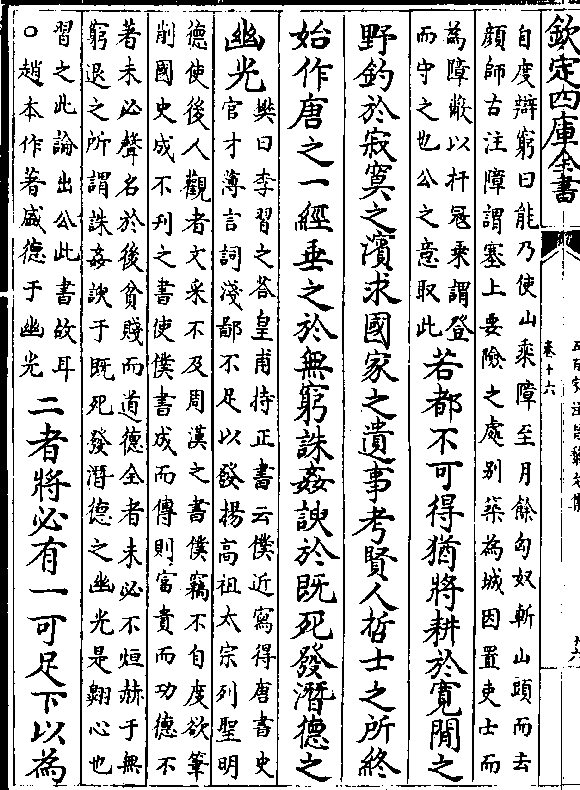 欽定四庫全書
卷十六
自度辯窮曰能乃使山乘障至月餘匈奴斬山頭而去
顔師古注障謂塞上要險之處别築為城因置吏士而
為障蔽以杆冦乘謂登
而守之也公之意取此
若都不可得猶將耕於寛閒之
野釣於寂寞之濱求國家之遺事考賢人哲士之所終
始作唐之一經垂之於無窮誅姦諛於既死發潛德之
幽光
樊曰李習之答皇甫持正書云僕近寫得唐書史
官才薄言詞淺鄙不足以發揚高祖太宗列聖明
德使後人觀者文采不及周漢之書僕竊不自度欲筆
削國史成不刋之書使僕書成而傳則富貴而功德不
著未必聲名於後貧賤而道德全者未必不烜赫于無
窮退之所謂誅姦諛于既死發潛德之幽光是翺心也
習之此論出公此書故耳
○趙本作著盛德于幽光
二者將必有一可足下以為